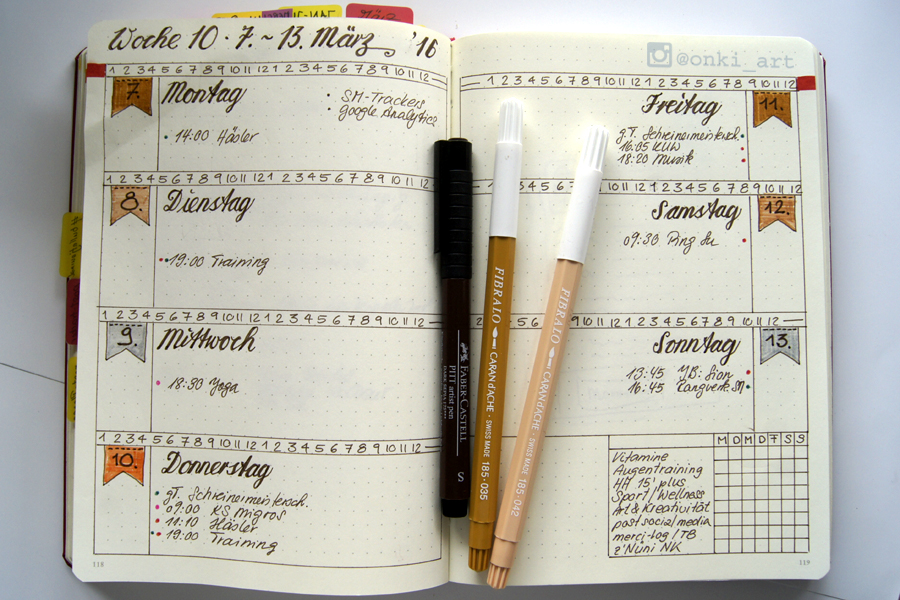 Woche 10 · 7. ~ 13. März '16
März
@onki_art
1 2 3 4 5 6 7 8 9 10 11 12 1 2 3 4 5 6 7 8 9 10 11 12
7. Montag
• SM-Trackers
• google Analytics
• 14:00 Häsler
1 2 3 4 5 6 7 8 9 10 11 12 1 2 3 4 5 6 7 8 9 10 11 12
8. Dienstag
19:00 Training
1 2 3 4 5 6 7 8 9 10 11 12 1 2 3 4 5 6 7 8 9 10 11 12
9. Mittwoch
• 18:30 Yoga
1 2 3 4 5 6 7 8 9 10 11 12 1 2 3 4 5 6 7 8 9 10 11 12
10. Donnerstag
• gT. Schreinermeistersch.
• 09:00 KS migros
• 11:10 Häsler
• 19:00 Training
118
1 2 3 4 5 6 7 8 9 10 11 12 1 2 3 4 5 6 7 8 9 10 11 12
Freitag 11.
gT. Schreinermeistersch.
16:05 KUW
18:20 Musik
Samstag 12.
09:30 Ping Su
Sonntag 13.
13:45 MB: Sion
16:45 SM
M D M D F S S
Vitamine
Augentraining
HA 15' plus
Sport/Wellness
Art & Kreativität
post social media
merci-log/TB
z'Nüni NK
119
FABER-CASTELL
PITT artist pen
S
FIBRALO CARAN d'ACHE · SWISS MADE 185·035
FIBRALO CARAN d'ACHE · SWISS MADE 185·042